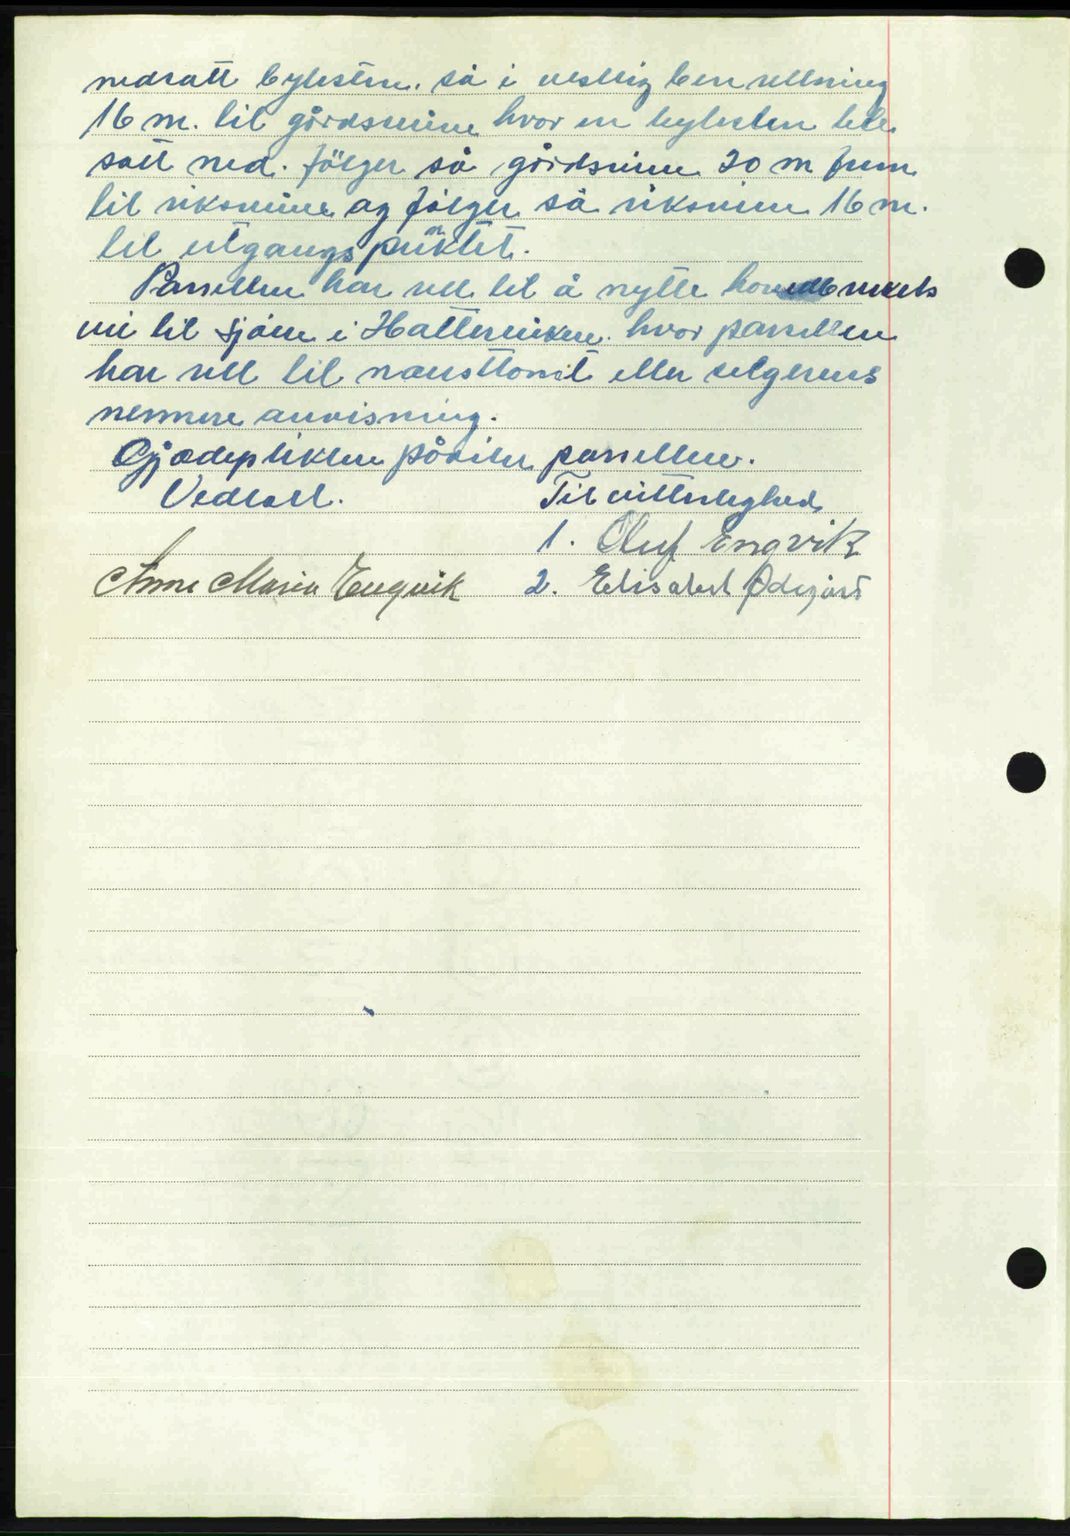 nedsatt bylestein. så i vestlig ben retning
16 m. til gårdsveien hvor en bylestein ble
satt ned. følger så gårdsveien 20 m frem
til riksveien og følger så riksveien 16 m.
til utgangspunktet.
Parsellen har rett til å nytte hovedbrukets
vei til sjøen i Hattervikene. hvor parsellen
har rett til nausttomt etter selgerens
nermere anvisning.
Gjerdeplikten påviler parsellen.
Vedtatt. Til vitterlighed
1. Oluf Engvik
Anne Marie Engvik 2. Elisabet Ødegård